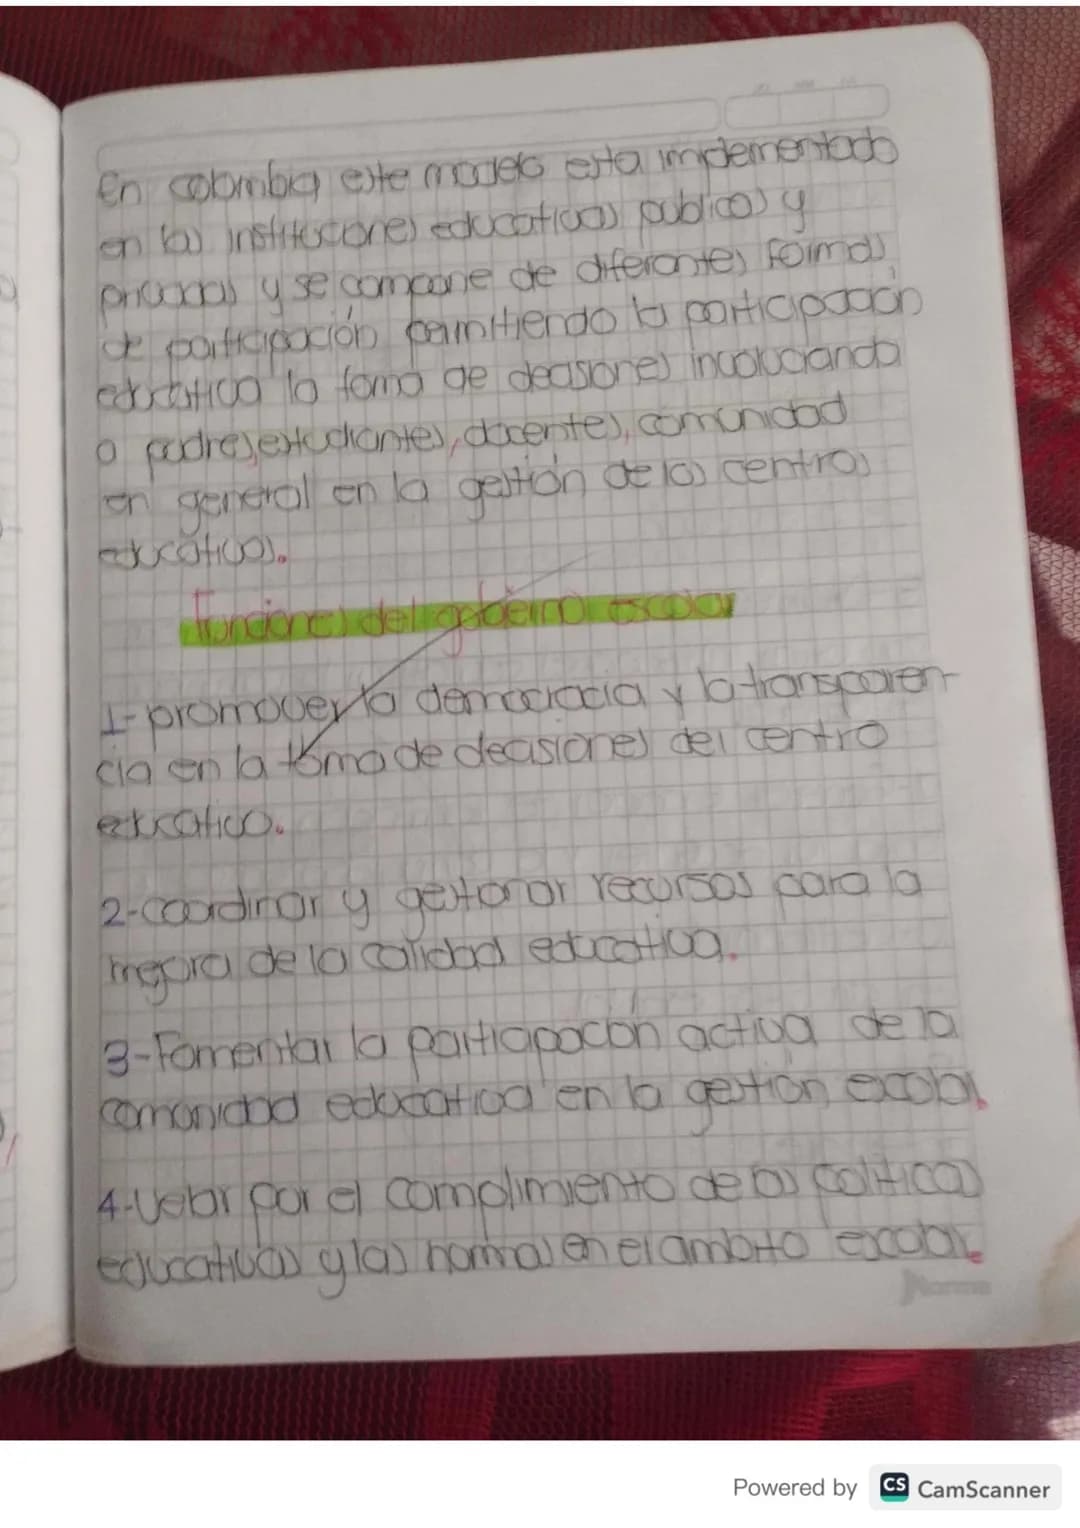 En colombia este modelo esta implementado
en las instituciones educativas publicos y
privadas y se compone de diferentes formas
de participación permitiendo la participación
educativa la toma de decisiones involuciando
a padres, estudiantes, docentes, comunidad
en general en la gestión de los centros
educativos.
Funciones del gobierno escolar
1- promover la democracia y la transparen-
cia en la toma de decisiones del centro
educativo.
2- coordinar y gestonar recursos para la
mejora de la calidad educativa.
3- Fomentar la participación activa de la
comunidad educativa en la gestión escolar.
4- Velar por el complimiento de las politicas
educativas y las normas en el ambito escolar.
Norma
Powered by CS CamScanner